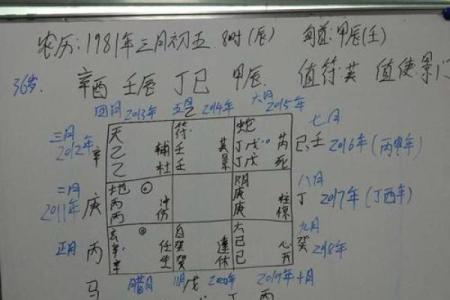 农历:1981年三月初五 8时(辰) 旬首:甲辰(壬)
36岁 辛酉 壬辰 丁巳 甲辰 值符:英 值使:景门
四月 2013年 五月 2014年 六月 2015年
三月 2012年 辛 天 乙 乙 辅 杜 符 壬 壬 英 景 蛇 丁戊 丁戊 芮 死 己壬 七月 2016年(丙申年)
二月 2011年 庚 地 丙 丙 冲 伤 阴 庚 庚 柱 惊 丁 八月 2017年(丁酉年)
正月 丙 玄 辛 辛 任 生 白 癸 癸 蓬 休 六 己 己 心 开 癸 九月 2018年
马 腊月 11月 戊 2020年 2019年 十月
丁 西